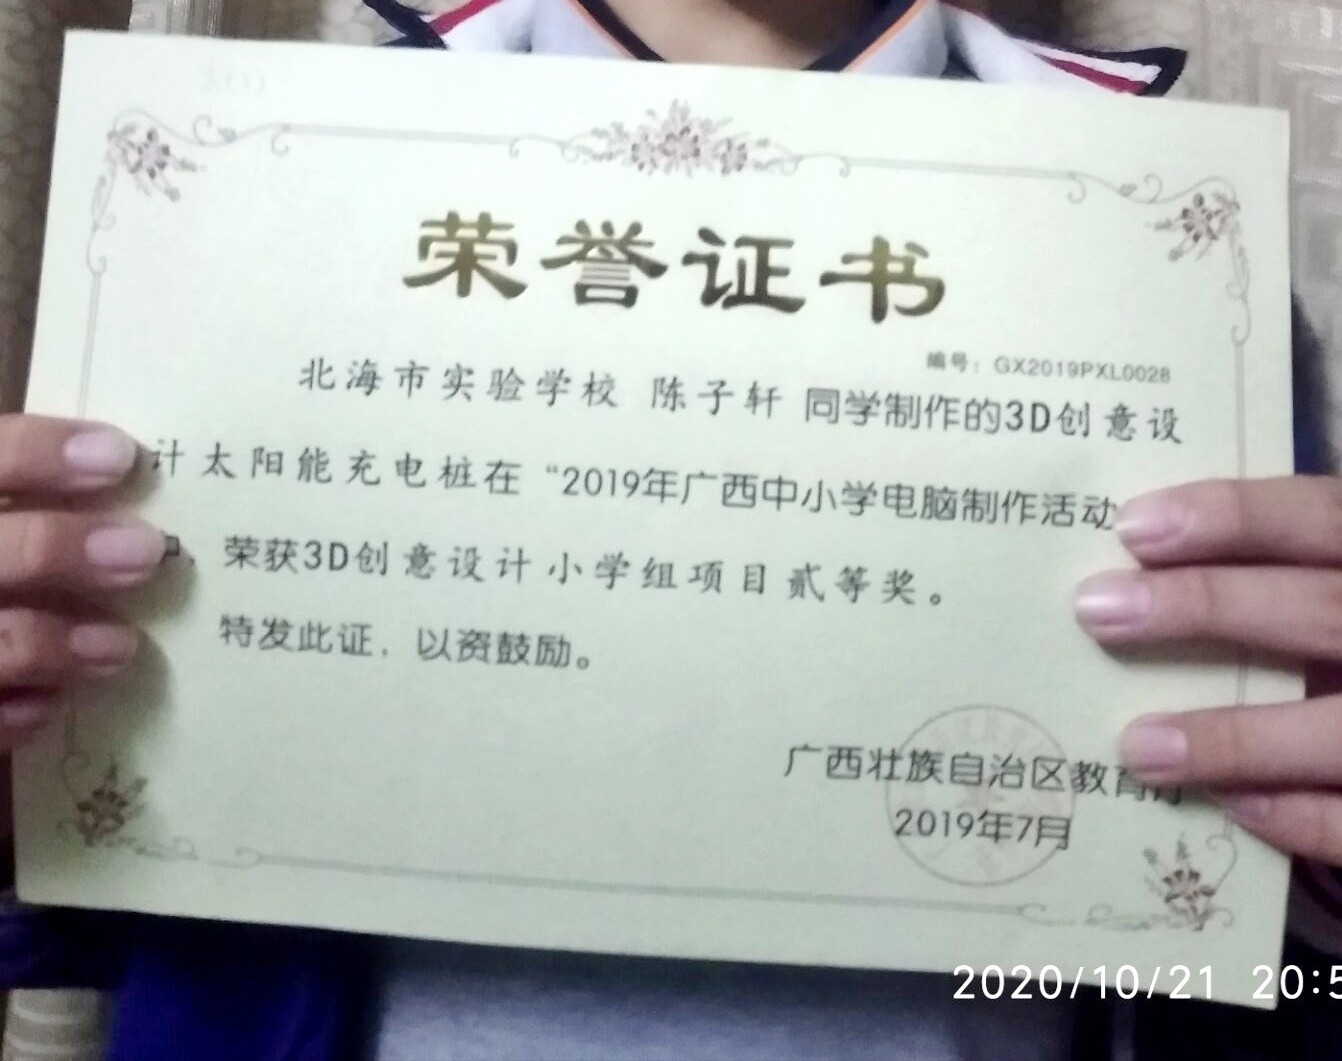 荣誉证书
编号：GX2019PXL0028
北海市实验学校 陈子轩 同学制作的3D创意设
计太阳能充电桩在“2019年广西中小学电脑制作活动
中，荣获3D创意设计小学组项目贰等奖。
特发此证，以资鼓励。
广西壮族自治区教育厅
2019年7月
2020/10/21 20:5